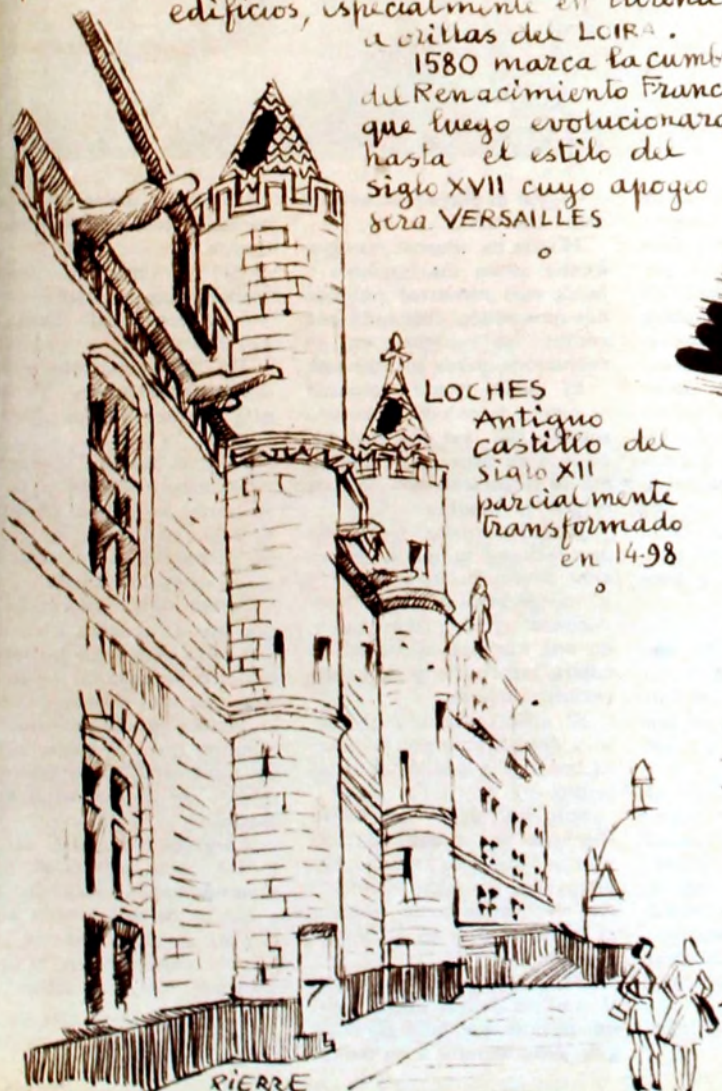 edificios, especialmente en
a orillas del LOIRA.
1580 marca la cumb
del Renacimiento Franc
que luego evolucionara
hasta el estilo del
siglo XVII cuyo apogeo
sera VERSAILLES
LOCHES
Antiguo
castillo del
siglo XII
parcialmente
transformado
en 14-98
PIERRE